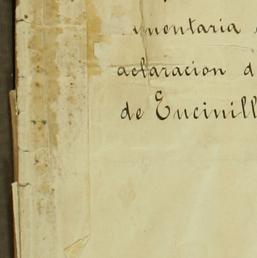 mentaria
aclaracion d
de Eucinill